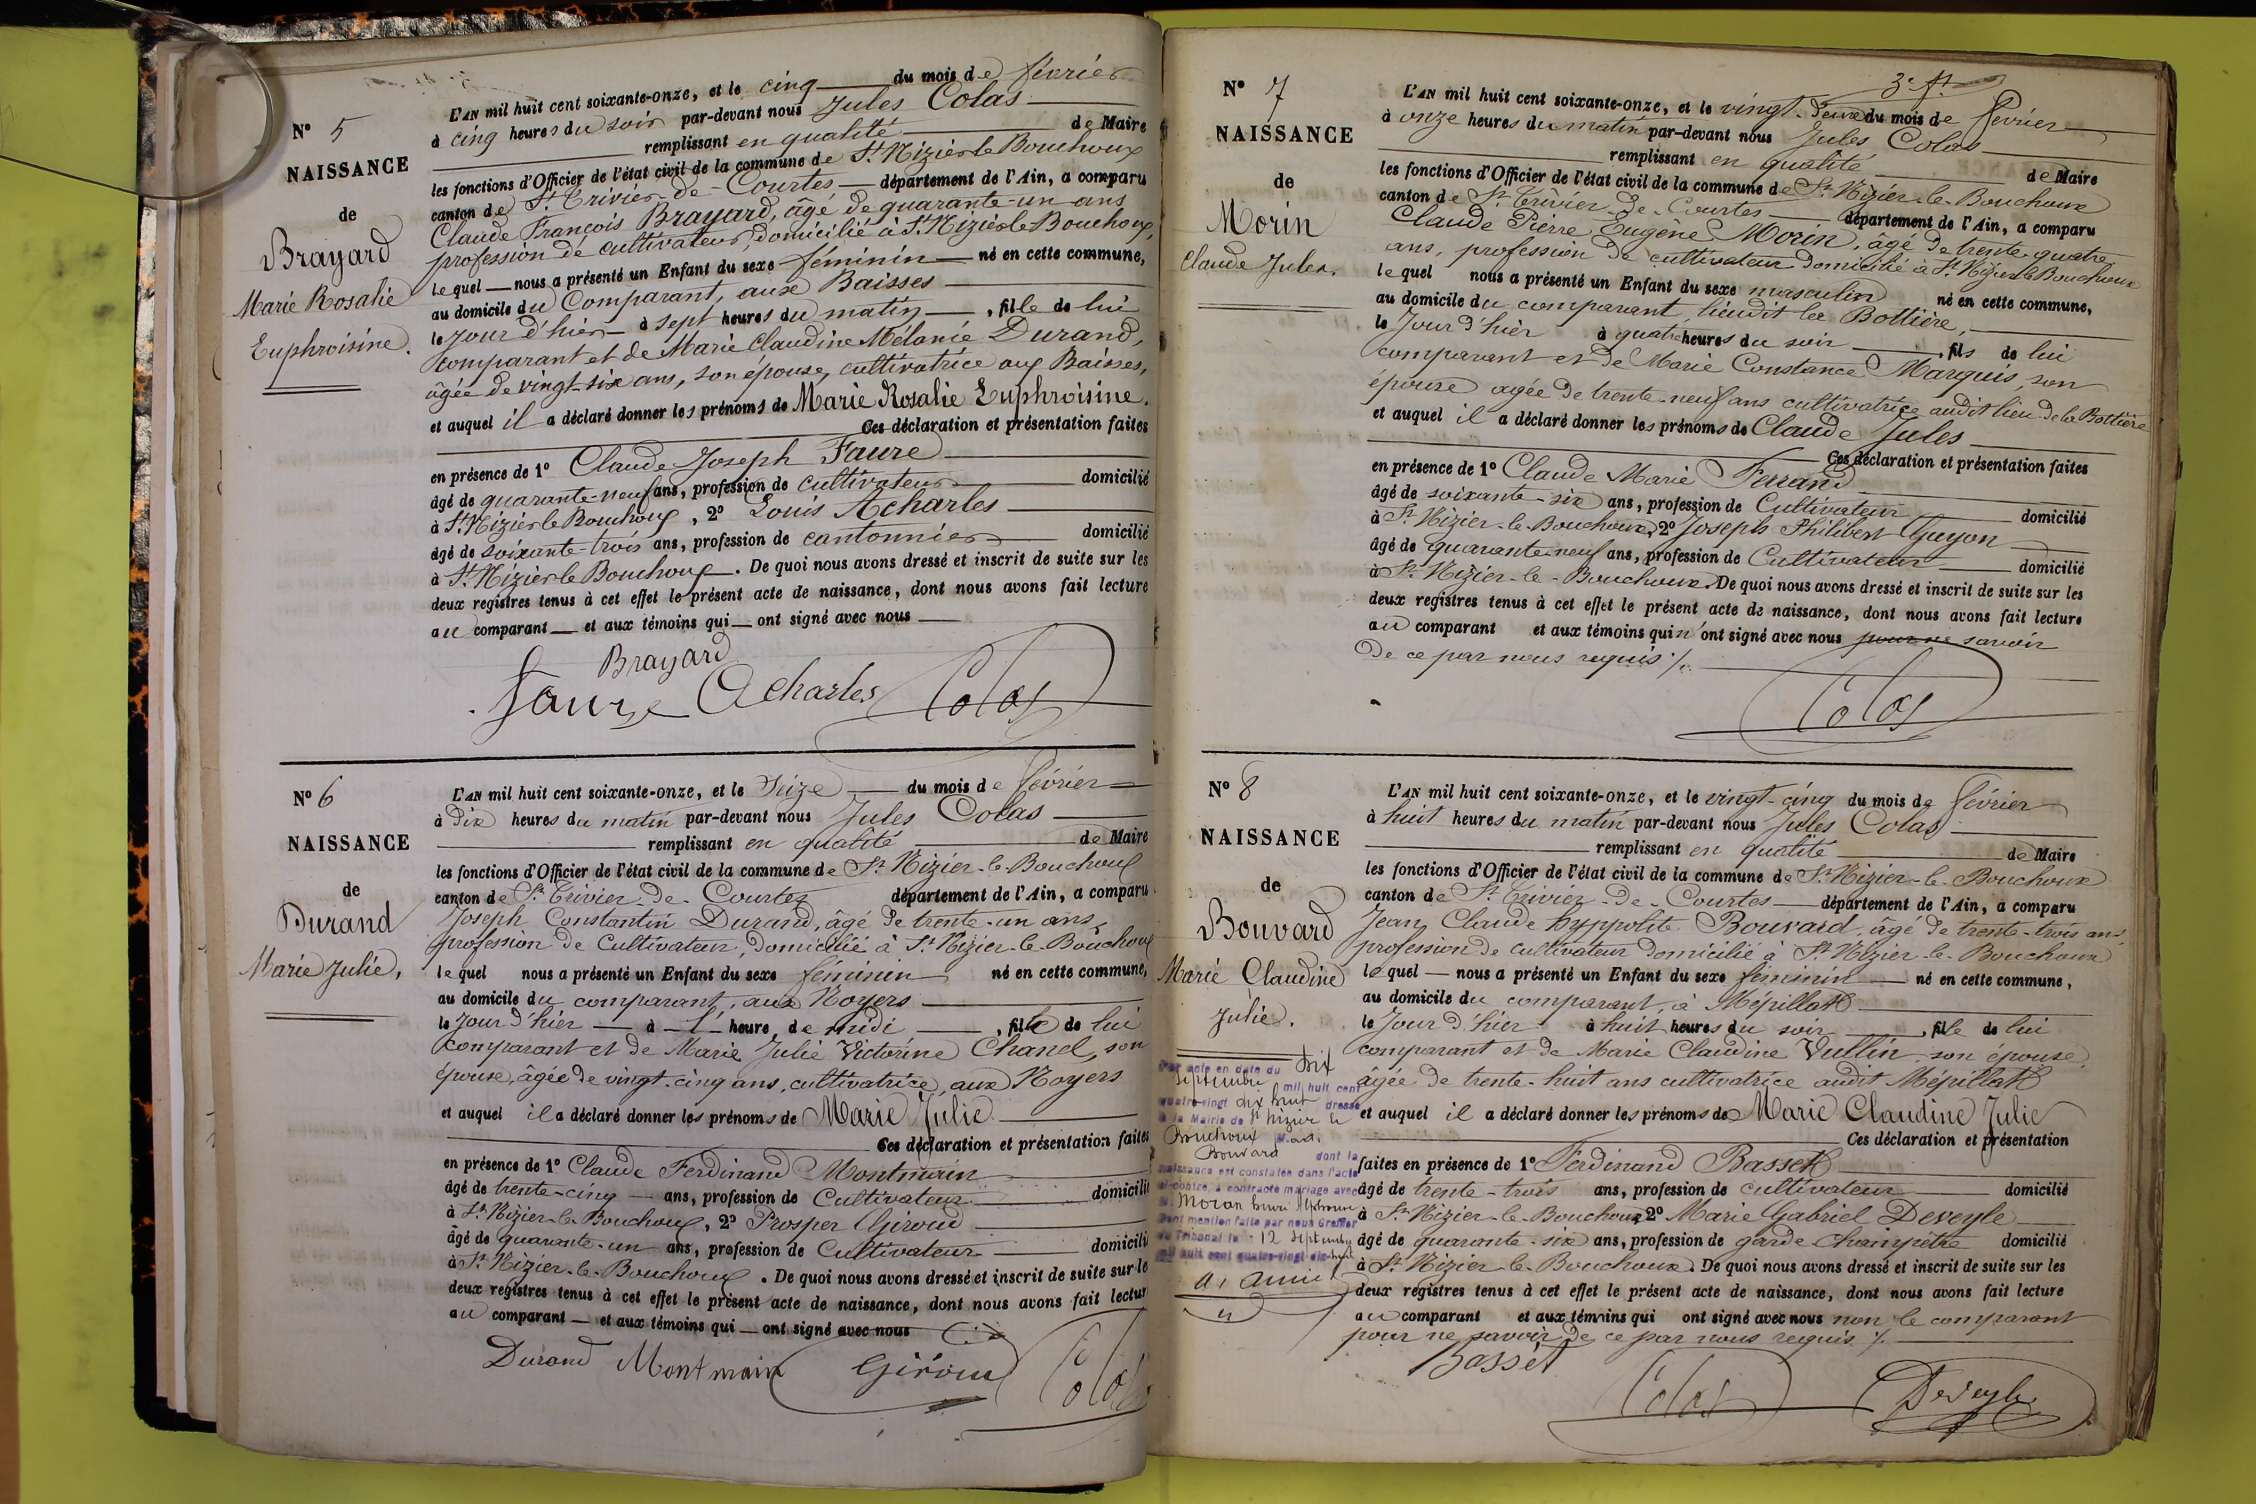 N° 5
NAISSANCE
de
Brayard
Marie Rosalie
Euphroisine.
L'AN mil huit cent soixante-onze, et le cinq du mois de février
à cinq heures du soir par-devant nous Jules Colas
remplissant en qualité de Maire
les fonctions d'Officier de l'état civil de la commune de St Nizier le Bouchoux
canton de St Trivier-de-Courtes département de l'Ain, a comparu
Claude François Brayard, âgé de quarante-un ans
profession de cultivateur, domicilié à St Nizier le Bouchoux,
lequel nous a présenté un Enfant du sexe féminin né en cette commune,
au domicile du Comparant, aux Baisses
le jour d'hier à sept heures du matin, fille de lui
comparant et de Marie Claudine Mélanie Durand,
âgée de vingt-six ans, son épouse, cultivatrice aux Baisses,
et auquel il a déclaré donner les prénoms de Marie Rosalie Euphroisine.
Ces déclaration et présentation faites
en présence de 1° Claude Joseph Faure
âgé de quarante-neuf ans, profession de cultivateur domicilié
à St Nizier le Bouchoux, 2° Louis Acharles
âgé de soixante-trois ans, profession de cantonnier domicilié
à St Nizier le Bouchoux. De quoi nous avons dressé et inscrit de suite sur les
deux registres tenus à cet effet le présent acte de naissance, dont nous avons fait lecture
au comparant et aux témoins qui ont signé avec nous
Brayard
Faure Acharles Colas
N° 6
NAISSANCE
de
Durand
Marie Julie,
L'AN mil huit cent soixante-onze, et le Seize du mois de février
à dix heures du matin par-devant nous Jules Colas
remplissant en qualité de Maire
les fonctions d'Officier de l'état civil de la commune de St Nizier-le-Bouchoux
canton de St Trivier-de-Courtes département de l'Ain, a comparu
Joseph Constantin Durand, âgé de trente-un ans,
profession de Cultivateur, domicilié à St Nizier-le-Bouchoux
lequel nous a présenté un Enfant du sexe féminin né en cette commune,
au domicile du comparant, aux Noyers
le jour d'hier à l' heure de midi, fille de lui
comparant et de Marie Julie Victorine Chanel, son
épouse, âgée de vingt-cinq ans, cultivatrice, aux Noyers
et auquel il a déclaré donner les prénoms de Marie Julie
Ces déclaration et présentation faites
en présence de 1° Claude Ferdinand Montmain
âgé de trente-cinq ans, profession de Cultivateur domicilié
à St Nizier-le-Bouchoux, 2° Prosper Giroud
âgé de quarante-un ans, profession de Cultivateur domicilié
à St Nizier-le-Bouchoux. De quoi nous avons dressé et inscrit de suite sur le
deux registres tenus à cet effet le présent acte de naissance, dont nous avons fait lecture
au comparant et aux témoins qui ont signé avec nous
Durand Montmain Giroud Colas
3e ft
N° 7
NAISSANCE
de
Morin
Claude Jules.
L'AN mil huit cent soixante-onze, et le vingt-deux du mois de février
à onze heures du matin par-devant nous Jules Colas
remplissant en qualité de Maire
les fonctions d'Officier de l'état civil de la commune de St Nizier-le-Bouchoux
canton de St Trivier-de-Courtes département de l'Ain, a comparu
Claude Pierre Eugène Morin, âgé de trente-quatre
ans, profession de cultivateur domicilié à St Nizier le Bouchoux
lequel nous a présenté un Enfant du sexe masculin né en cette commune,
au domicile du comparant, lieudit la Bottière,
le Jour d'hier à quatre heures du soir, fils de lui
comparant et de Marie Constance Marquis, son
épouse agée de trente-neuf ans cultivatrice audit lieu de la Bottière
et auquel il a déclaré donner les prénoms de Claude Jules
Ces déclaration et présentation faites
en présence de 1° Claude Marie Ferrand
âgé de soixante-six ans, profession de Cultivateur domicilié
à St Nizier-le-Bouchoux, 2° Joseph Philibert Guyon
âgé de quarante-neuf ans, profession de Cultivateur domicilié
à St Nizier-le-Bouchoux. De quoi nous avons dressé et inscrit de suite sur les
deux registres tenus à cet effet le présent acte de naissance, dont nous avons fait lecture
au comparant et aux témoins qui n'ont signé avec nous pour ne savoir
de ce par nous requis ./.
Colas
N° 8
NAISSANCE
de
Bouvard
Marie Claudine
Julie.
Par acte en date du dix
septembre mil huit cent
quatre-vingt dix huit dressé
à la Mairie de St Nizier le
Bouchoux
Bouvard dont la
naissance est constatée dans l'acte
ci-contre, a contracté mariage avec
Moran henri Alphonse
Dont mention faite par nous Greffier
du Tribunal le 12 septembre
mil huit cent quatre-vingt dix-huit
L'AN mil huit cent soixante-onze, et le vingt-cinq du mois de février
à huit heures du matin par-devant nous Jules Colas
remplissant en qualité de Maire
les fonctions d'Officier de l'état civil de la commune de St Nizier-le-Bouchoux
canton de St Trivier-de-Courtes département de l'Ain, a comparu
Jean Claude hyppolite Bouvard, âgé de trente-trois ans,
profession de cultivateur domicilié à St Nizier-le-Bouchoux
lequel nous a présenté un Enfant du sexe féminin né en cette commune,
au domicile du comparant, à Mépillat
le Jour d'hier à huit heures du soir, fille de lui
comparant et de Marie Claudine Vullin, son épouse,
âgée de trente-huit ans cultivatrice audit Mépillat
et auquel il a déclaré donner les prénoms de Marie Claudine Julie
Ces déclaration et présentation
faites en présence de 1° Ferdinand Basset
âgé de trente-trois ans, profession de cultivateur domicilié
à St Nizier-le-Bouchoux 2° Marie Gabriel Deveyle
âgé de quarante-six ans, profession de garde champêtre domicilié
à St Nizier-le-Bouchoux. De quoi nous avons dressé et inscrit de suite sur les
deux registres tenus à cet effet le présent acte de naissance, dont nous avons fait lecture
au comparant et aux témoins qui ont signé avec nous non le comparant
pour ne savoir de ce par nous requis ./.
Basset
Colas Deveyle